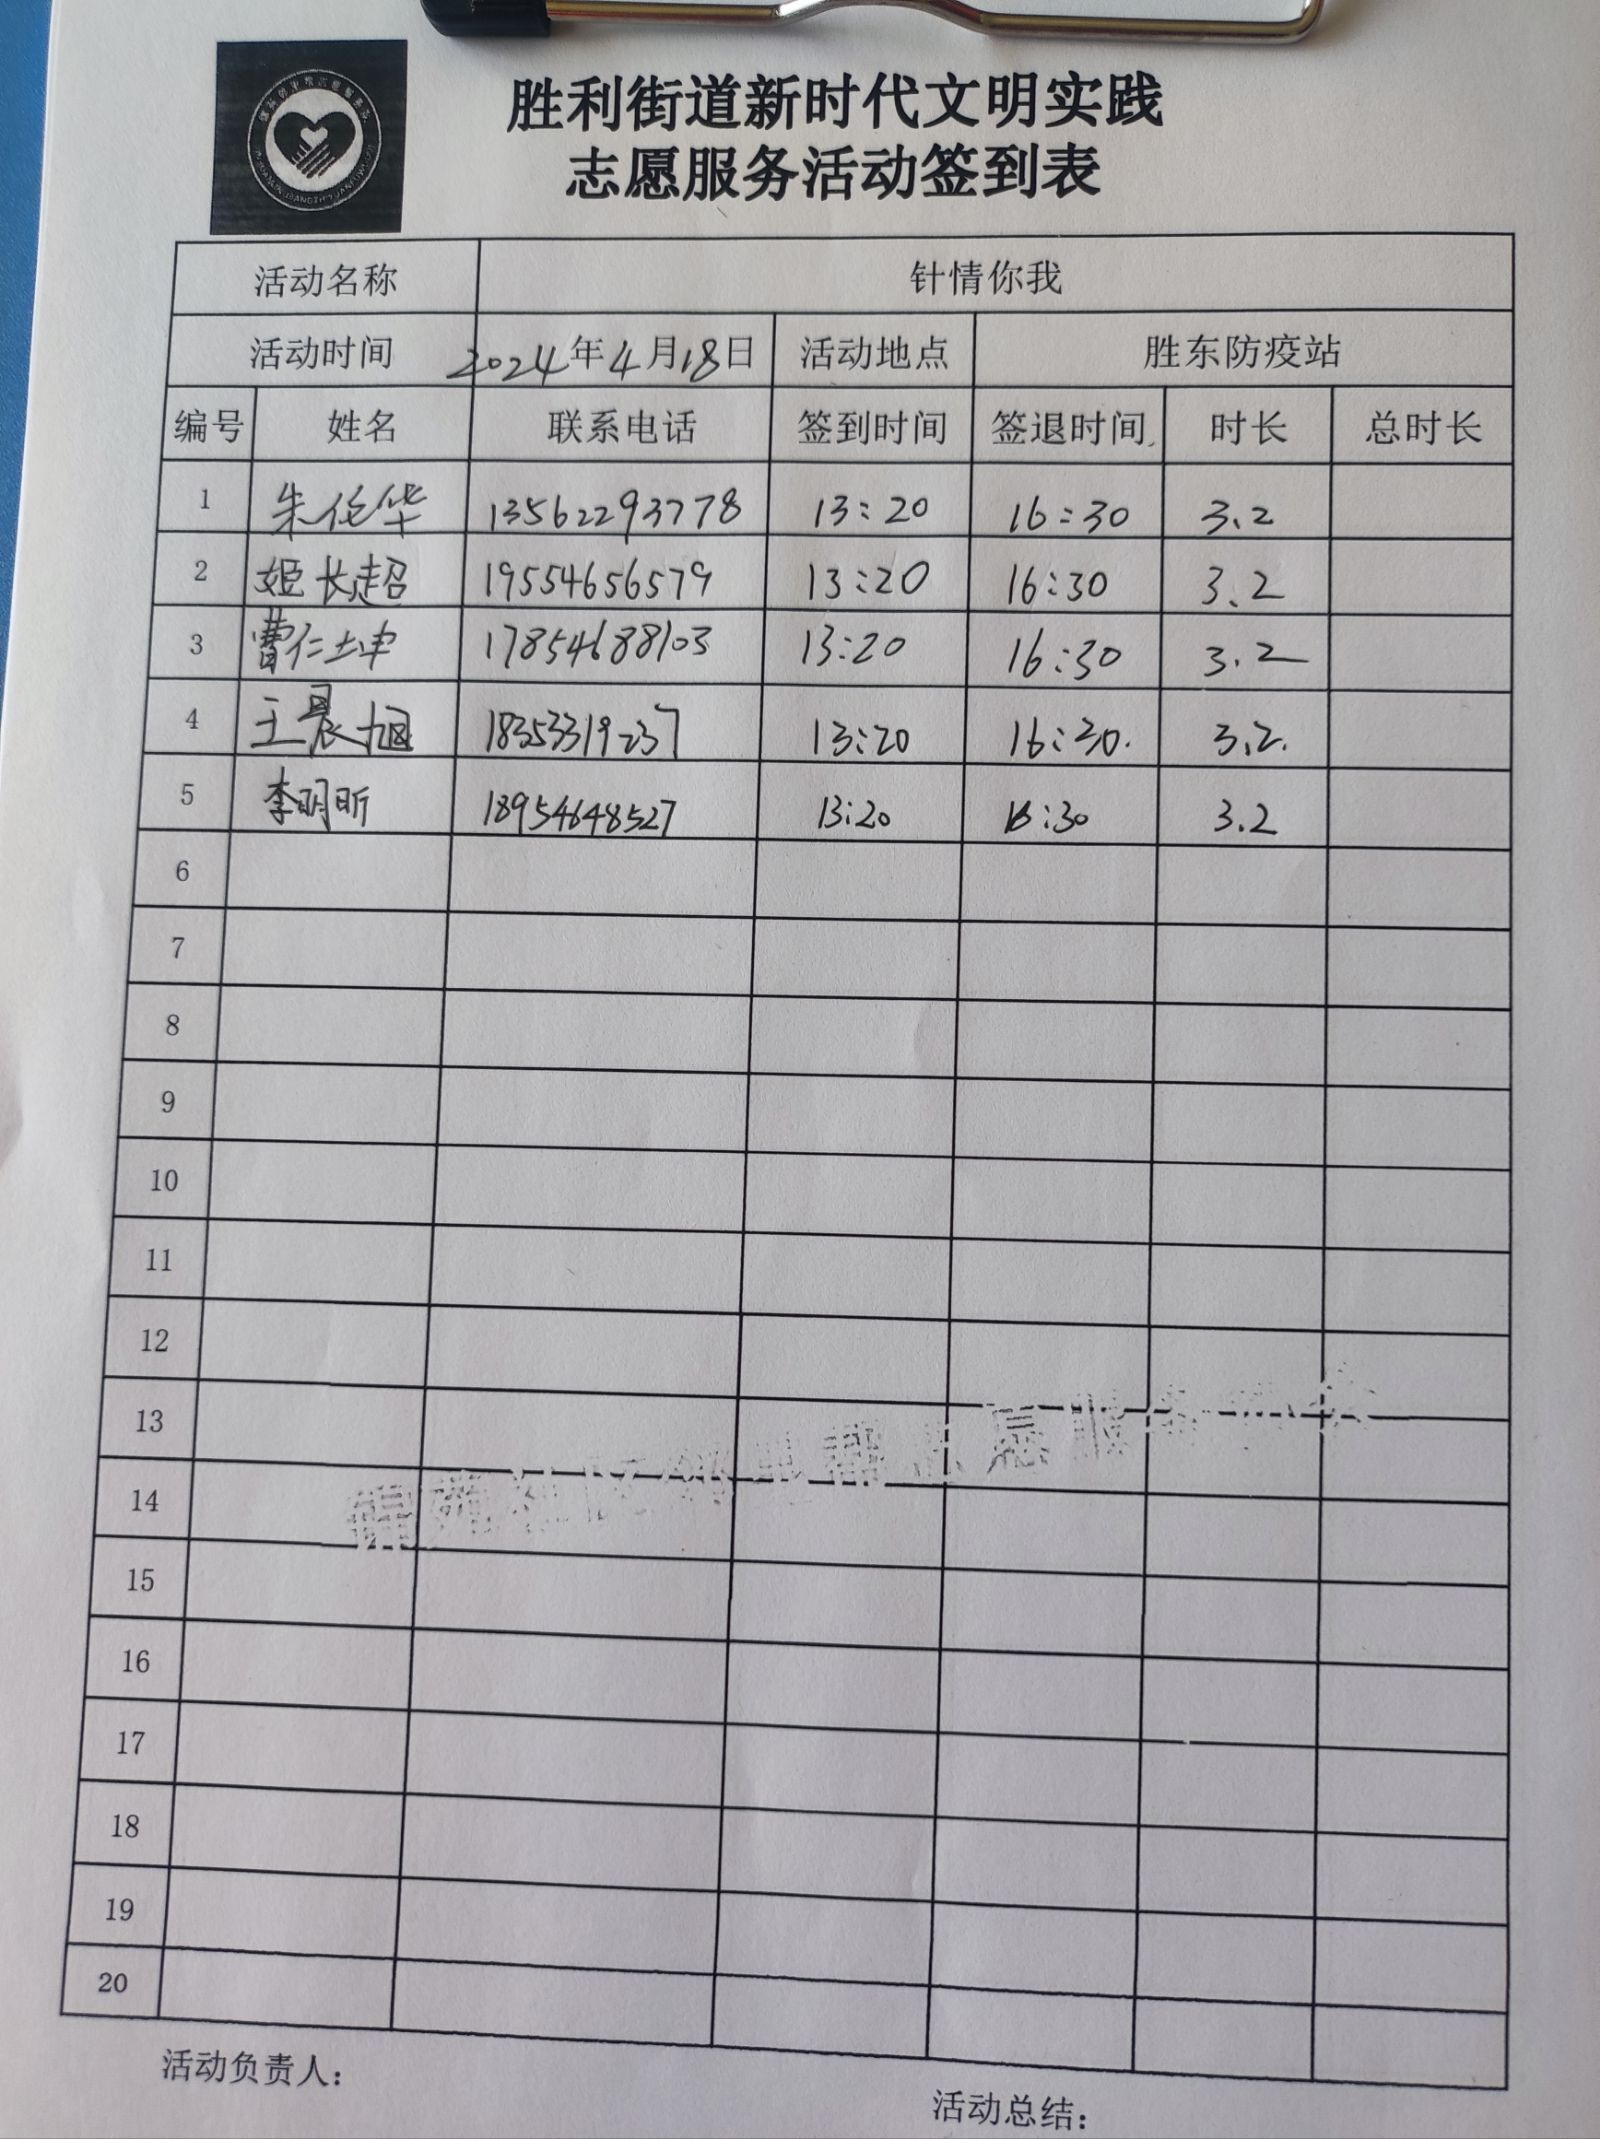 胜利街道新时代文明实践
志愿服务活动签到表
活动名称 针情你我
活动时间 2024年4月18日 活动地点 胜东防疫站
编号 姓名 联系电话 签到时间 签退时间 时长 总时长
1 朱伦华 13562293778 13:20 16:30 3.2
2 姬长超 19554656579 13:20 16:30 3.2
3 曹仁士申 17854688103 13:20 16:30 3.2
4 王晨旭 18353319237 13:20 16:30. 3.2.
5 李明昕 18954648527 13:20 16:30 3.2
6
7
8
9
10
11
12
13
14
15
16
17
18
19
20
活动负责人：
活动总结：